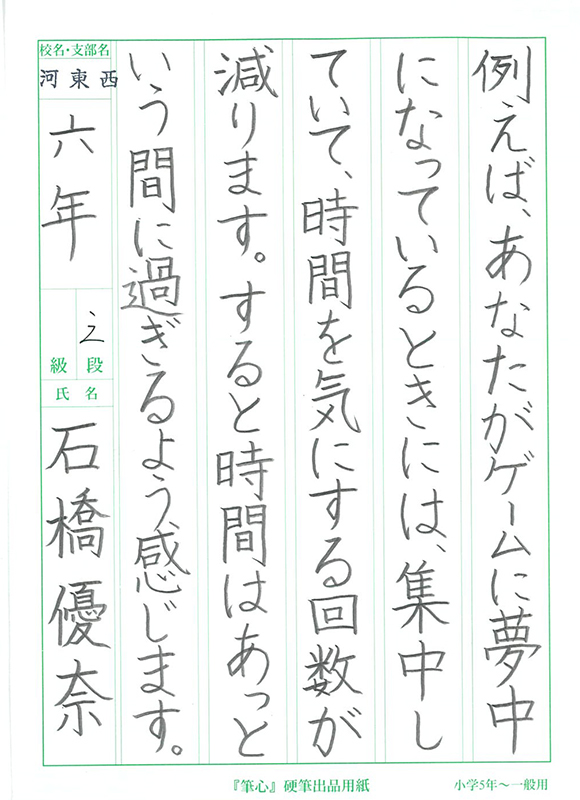 例えば、あなたがゲームに夢中
になっているときには、集中し
ていて、時間を気にする回数が
減ります。すると時間はあっと
いう間に過ぎるよう、感じます。
校名・支部名
河東西
六年
段
級
氏名
石橋優奈
『筆心』硬筆出品用紙
小学5年〜一般用